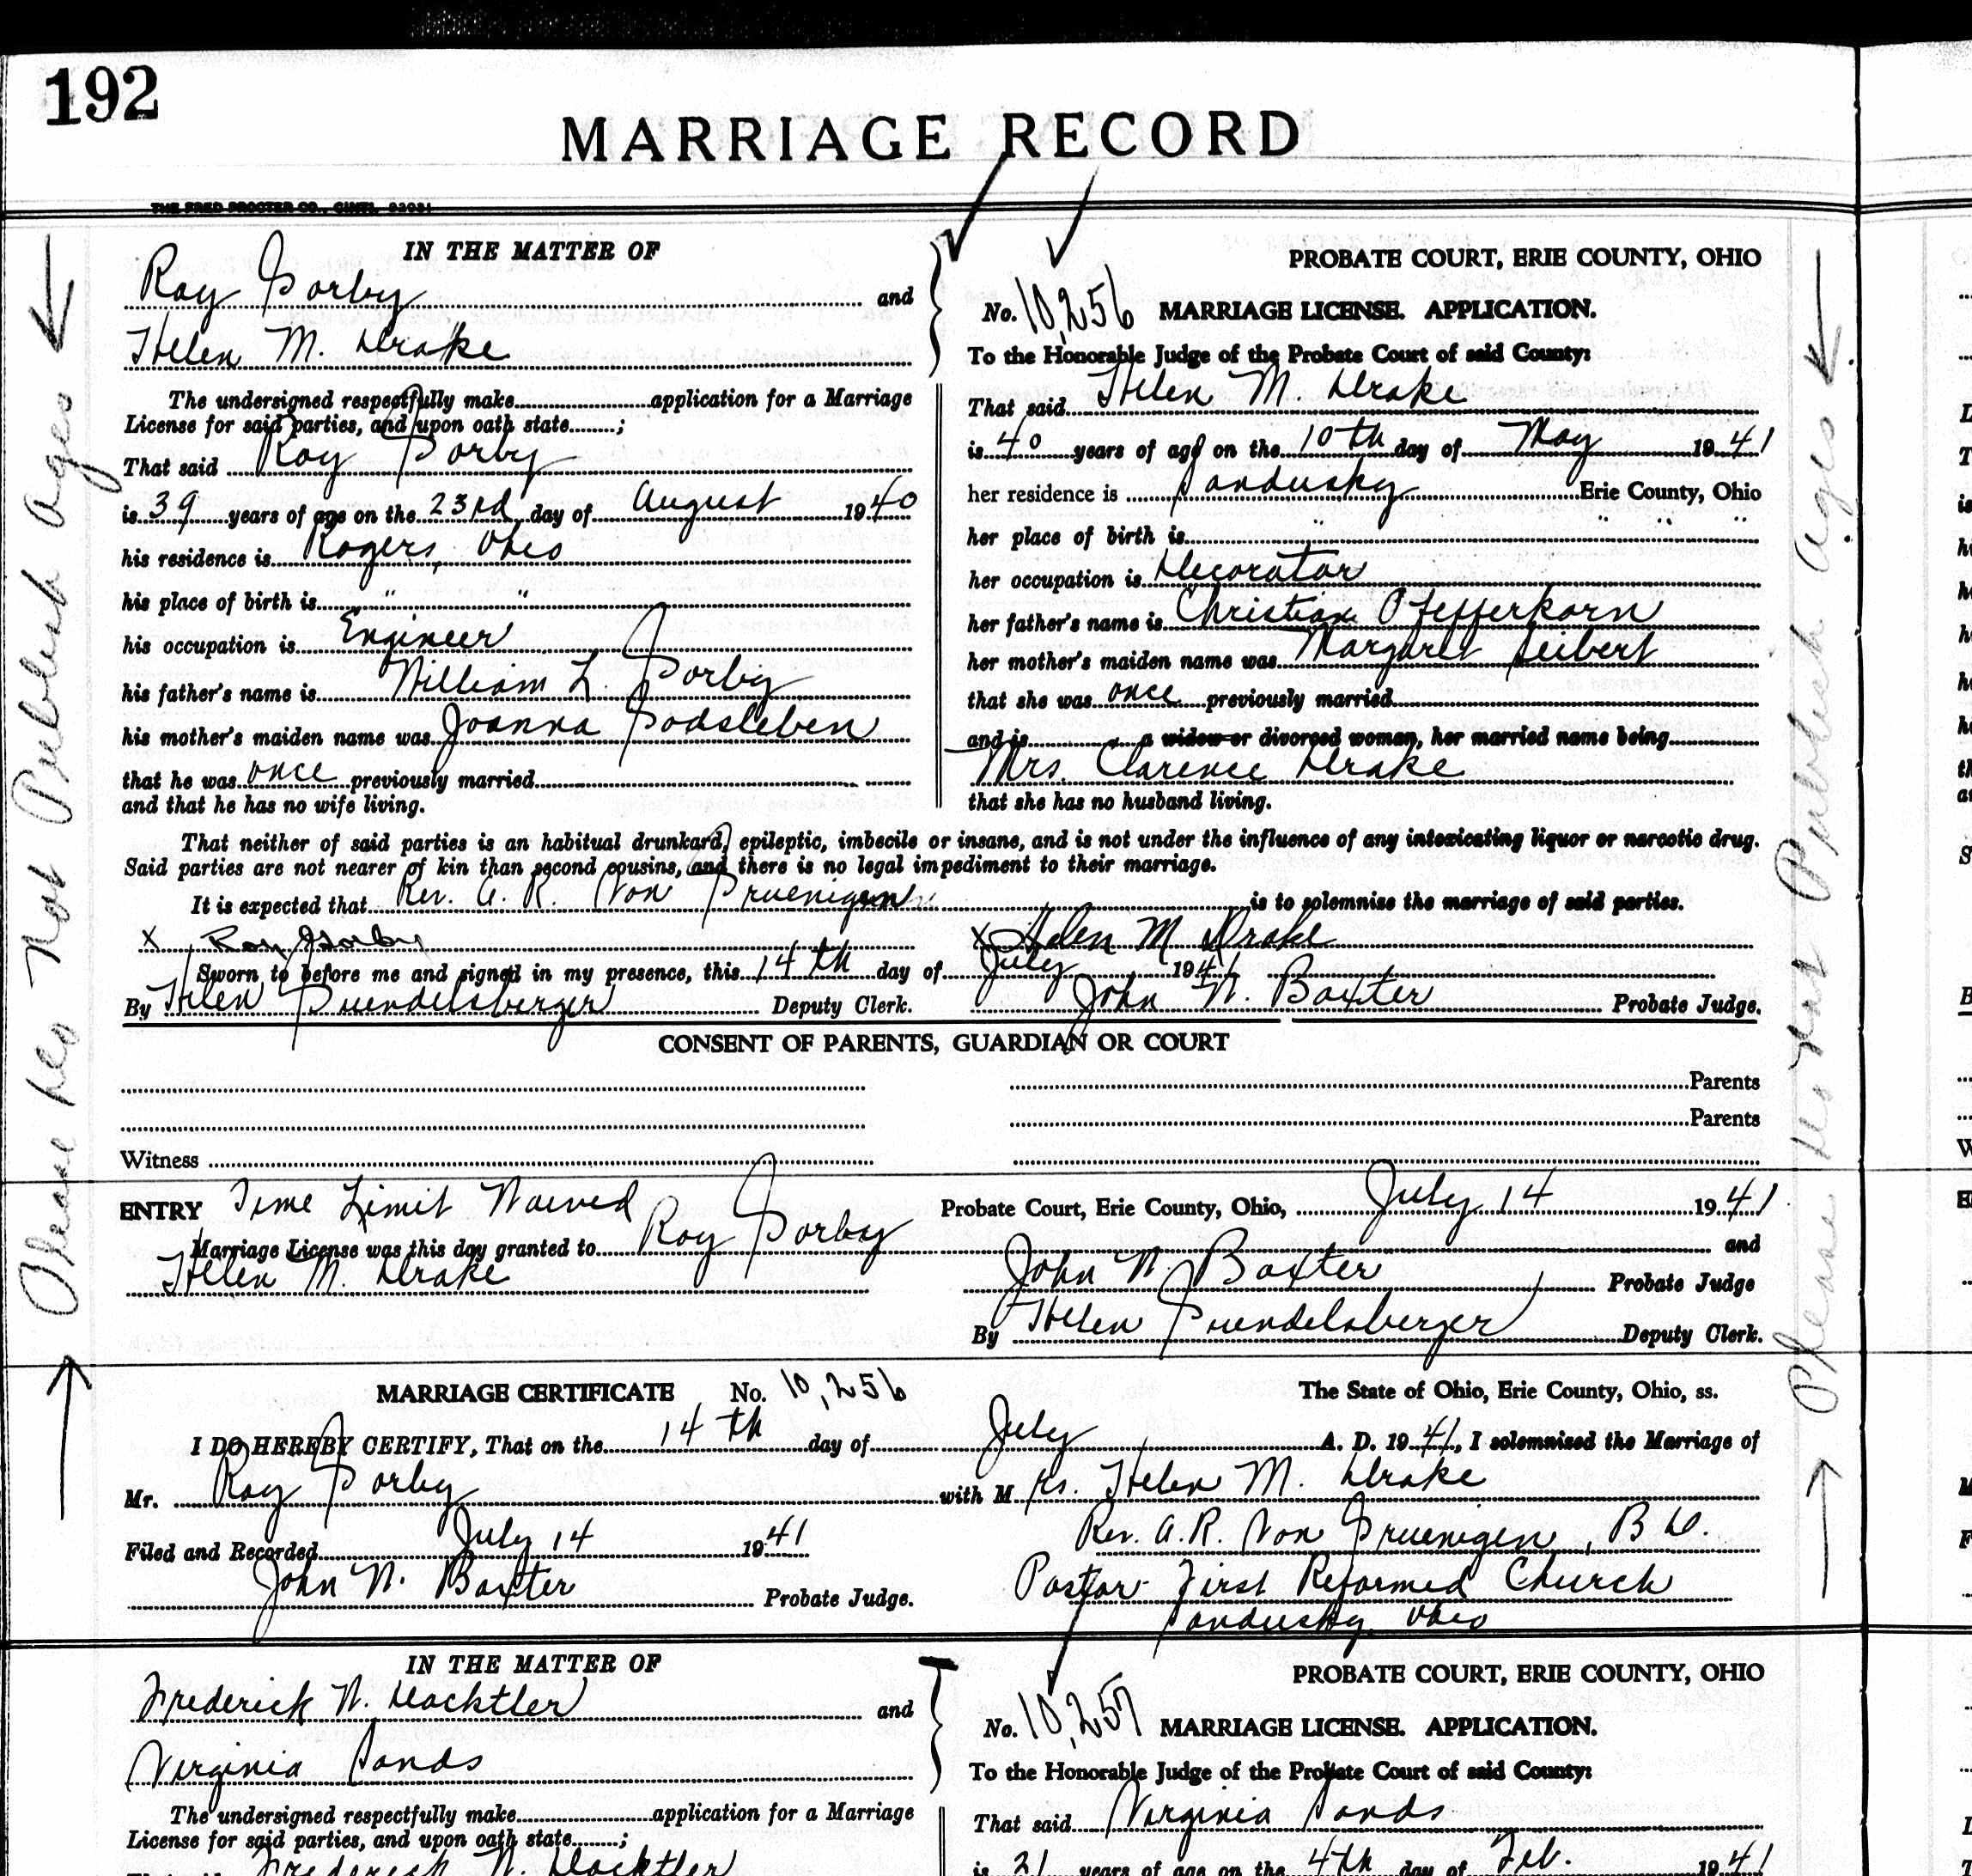 192
MARRIAGE RECORD
THE FRED PROCTER CO., CINTI.
IN THE MATTER OF
Roy Gorby and
Helen M. Drake
The undersigned respectfully make application for a Marriage
License for said parties, and upon oath state ;
That said Roy Gorby
is 39 years of age on the 23rd day of August 1940
his residence is Rogers, Ohio
his place of birth is " "
his occupation is Engineer
his father's name is William L. Gorby
his mother's maiden name was Joanna
that he was once previously married
and that he has no wife living.
PROBATE COURT, ERIE COUNTY, OHIO
No. 10,256 MARRIAGE LICENSE. APPLICATION.
To the Honorable Judge of the Probate Court of said County:
That said Helen M. Drake
is 40 years of age on the 10th day of May 1941
her residence is Sandusky Erie County, Ohio
her place of birth is " " " "
her occupation is Decorator
her father's name is Christian Pfefferkorn
her mother's maiden name was Margaret Seibert
that she was once previously married
and is a widow or divorced woman, her married name being
Mrs. Clarence Drake
that she has no husband living.
That neither of said parties is an habitual drunkard, epileptic, imbecile or insane, and is not under the influence of any intoxicating liquor or narcotic drug.
Said parties are not nearer of kin than second cousins, and there is no legal impediment to their marriage.
It is expected that Rev. A. R. Von Gruenigen is to solemnize the marriage of said parties.
X Roy Gorby X Helen M Drake
Sworn to before me and signed in my presence, this 14th day of July 1941
By Helen Guendelsberger Deputy Clerk. John W. Baxter Probate Judge.
CONSENT OF PARENTS, GUARDIAN OR COURT
Parents
Parents
Witness
ENTRY Time Limit Waived Probate Court, Erie County, Ohio, July 14 1941
Marriage License was this day granted to Roy Gorby and
Helen M. Drake John W. Baxter Probate Judge
By Helen Guendelsberger Deputy Clerk.
MARRIAGE CERTIFICATE No. 10,256 The State of Ohio, Erie County, Ohio, ss.
I DO HEREBY CERTIFY, That on the 14th day of July A. D. 1941, I solemnized the Marriage of
Mr. Roy Gorby with Mrs. Helen M. Drake
Filed and Recorded July 14 1941 Rev. A. R. Von Gruenigen, B.D.
John W. Baxter Probate Judge. Pastor First Reformed Church
Sandusky, Ohio
IN THE MATTER OF
Frederick W. and
Virginia Sands
The undersigned respectfully make application for a Marriage
License for said parties, and upon oath state ;
Frederick W.
PROBATE COURT, ERIE COUNTY, OHIO
No. 10,257 MARRIAGE LICENSE. APPLICATION.
To the Honorable Judge of the Probate Court of said County:
That said Virginia Sands
is 21 years of age on the 4th day of Feb. 1941
Please Do Not Publish Ages
Please Do Not Publish Ages